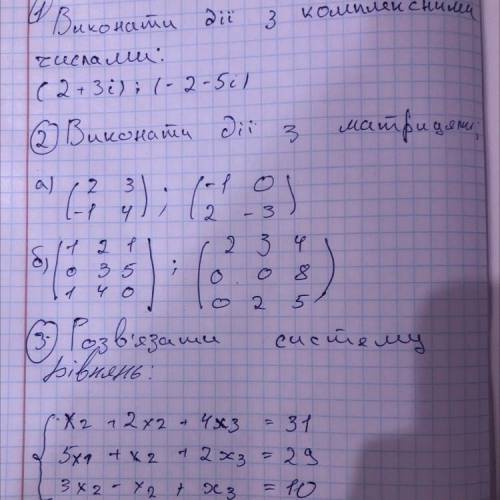 1) Виконати дії з комплексними
числами:
(2+3i); (-2-5i)
2) Виконати дії з матрицями:
а) (2 3; (-1 0
-1 4) 2 -3)
б) (1 2 1; (2 3 4
0 3 5 0 0 8
1 4 0) 0 2 5)
3. Розв'язати систему
рівнянь:
{x2 + 2x2 + 4x3 = 31
5x1 + x2 + 2x3 = 29
3x2 - x2 + x3 = 10